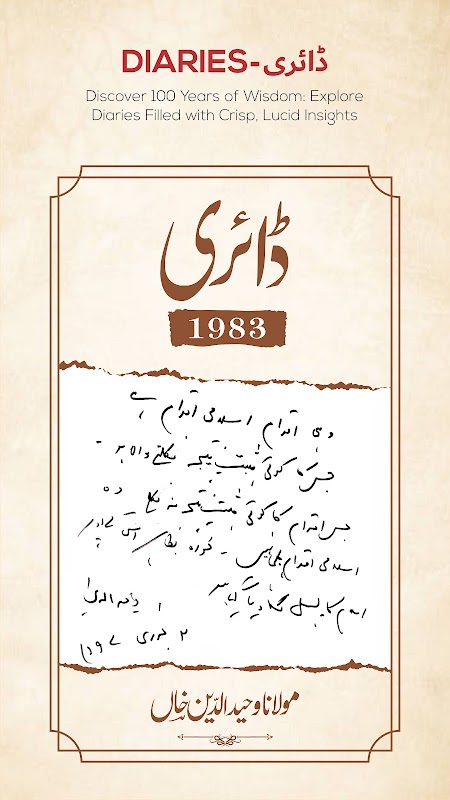 DIARIES-ڈائری
Discover 100 Years of Wisdom: Explore
Diaries Filled with Crisp, Lucid Insights
ڈائری
1983
وہی اقدام اسلامی اقدام ہے
جس کا کوئی مثبت نتیجہ نکلنے والا ہو۔
جس اقدام کا کوئی مثبت نتیجہ نہ نکلے وہ
اسلامی اقدام ہی نہیں۔ خواہ بظاہر اس کے اوپر
اسلام کا لیبل لگا دیا گیا ہو
جنوری
مولانا وحید الدین خاں